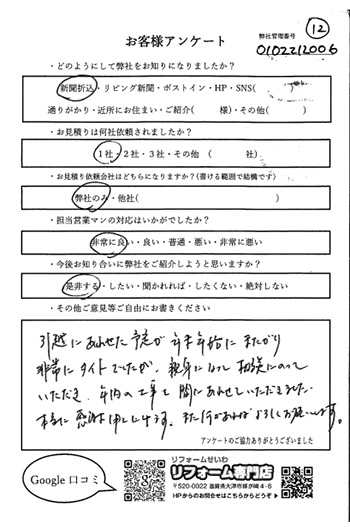 ⑫
弊社管理番号
0102212006
お客様アンケート
・どのようにして弊社をお知りになりましたか？
新聞折込・リビング新聞・ポストイン・HP・SNS( )
通りがかり・近所にお住まい・ご紹介( 様)・その他( )
・お見積りは何社依頼されましたか？
1社・2社・3社・その他 ( 社)
・お見積り依頼会社はどちらになりますか？(書ける範囲で結構です)
弊社のみ・他社( )
・担当営業マンの対応はいかがでしたか？
非常に良い・良い・普通・悪い・非常に悪い
・今後お知り合いに弊社をご紹介しようと思いますか？
是非する・したい・聞かれれば・したくない・絶対しない
・その他ご意見等ご自由にお書きください
引越にあわせた予定が年末年始にまたがり
非常にタイトでしたが、親身になって相談にのって
いただき、年内の工事を間にあわせていただきました。
本当に感謝申し上げます。また何かあればよろしくお願いします。
アンケートのご協力ありがとうございました
Google 口コミ
リフォームせいわ
リフォーム専門店
〒520-0022 滋賀県大津市柳が崎4-6
HPからのお問合せはこちらからどうぞ